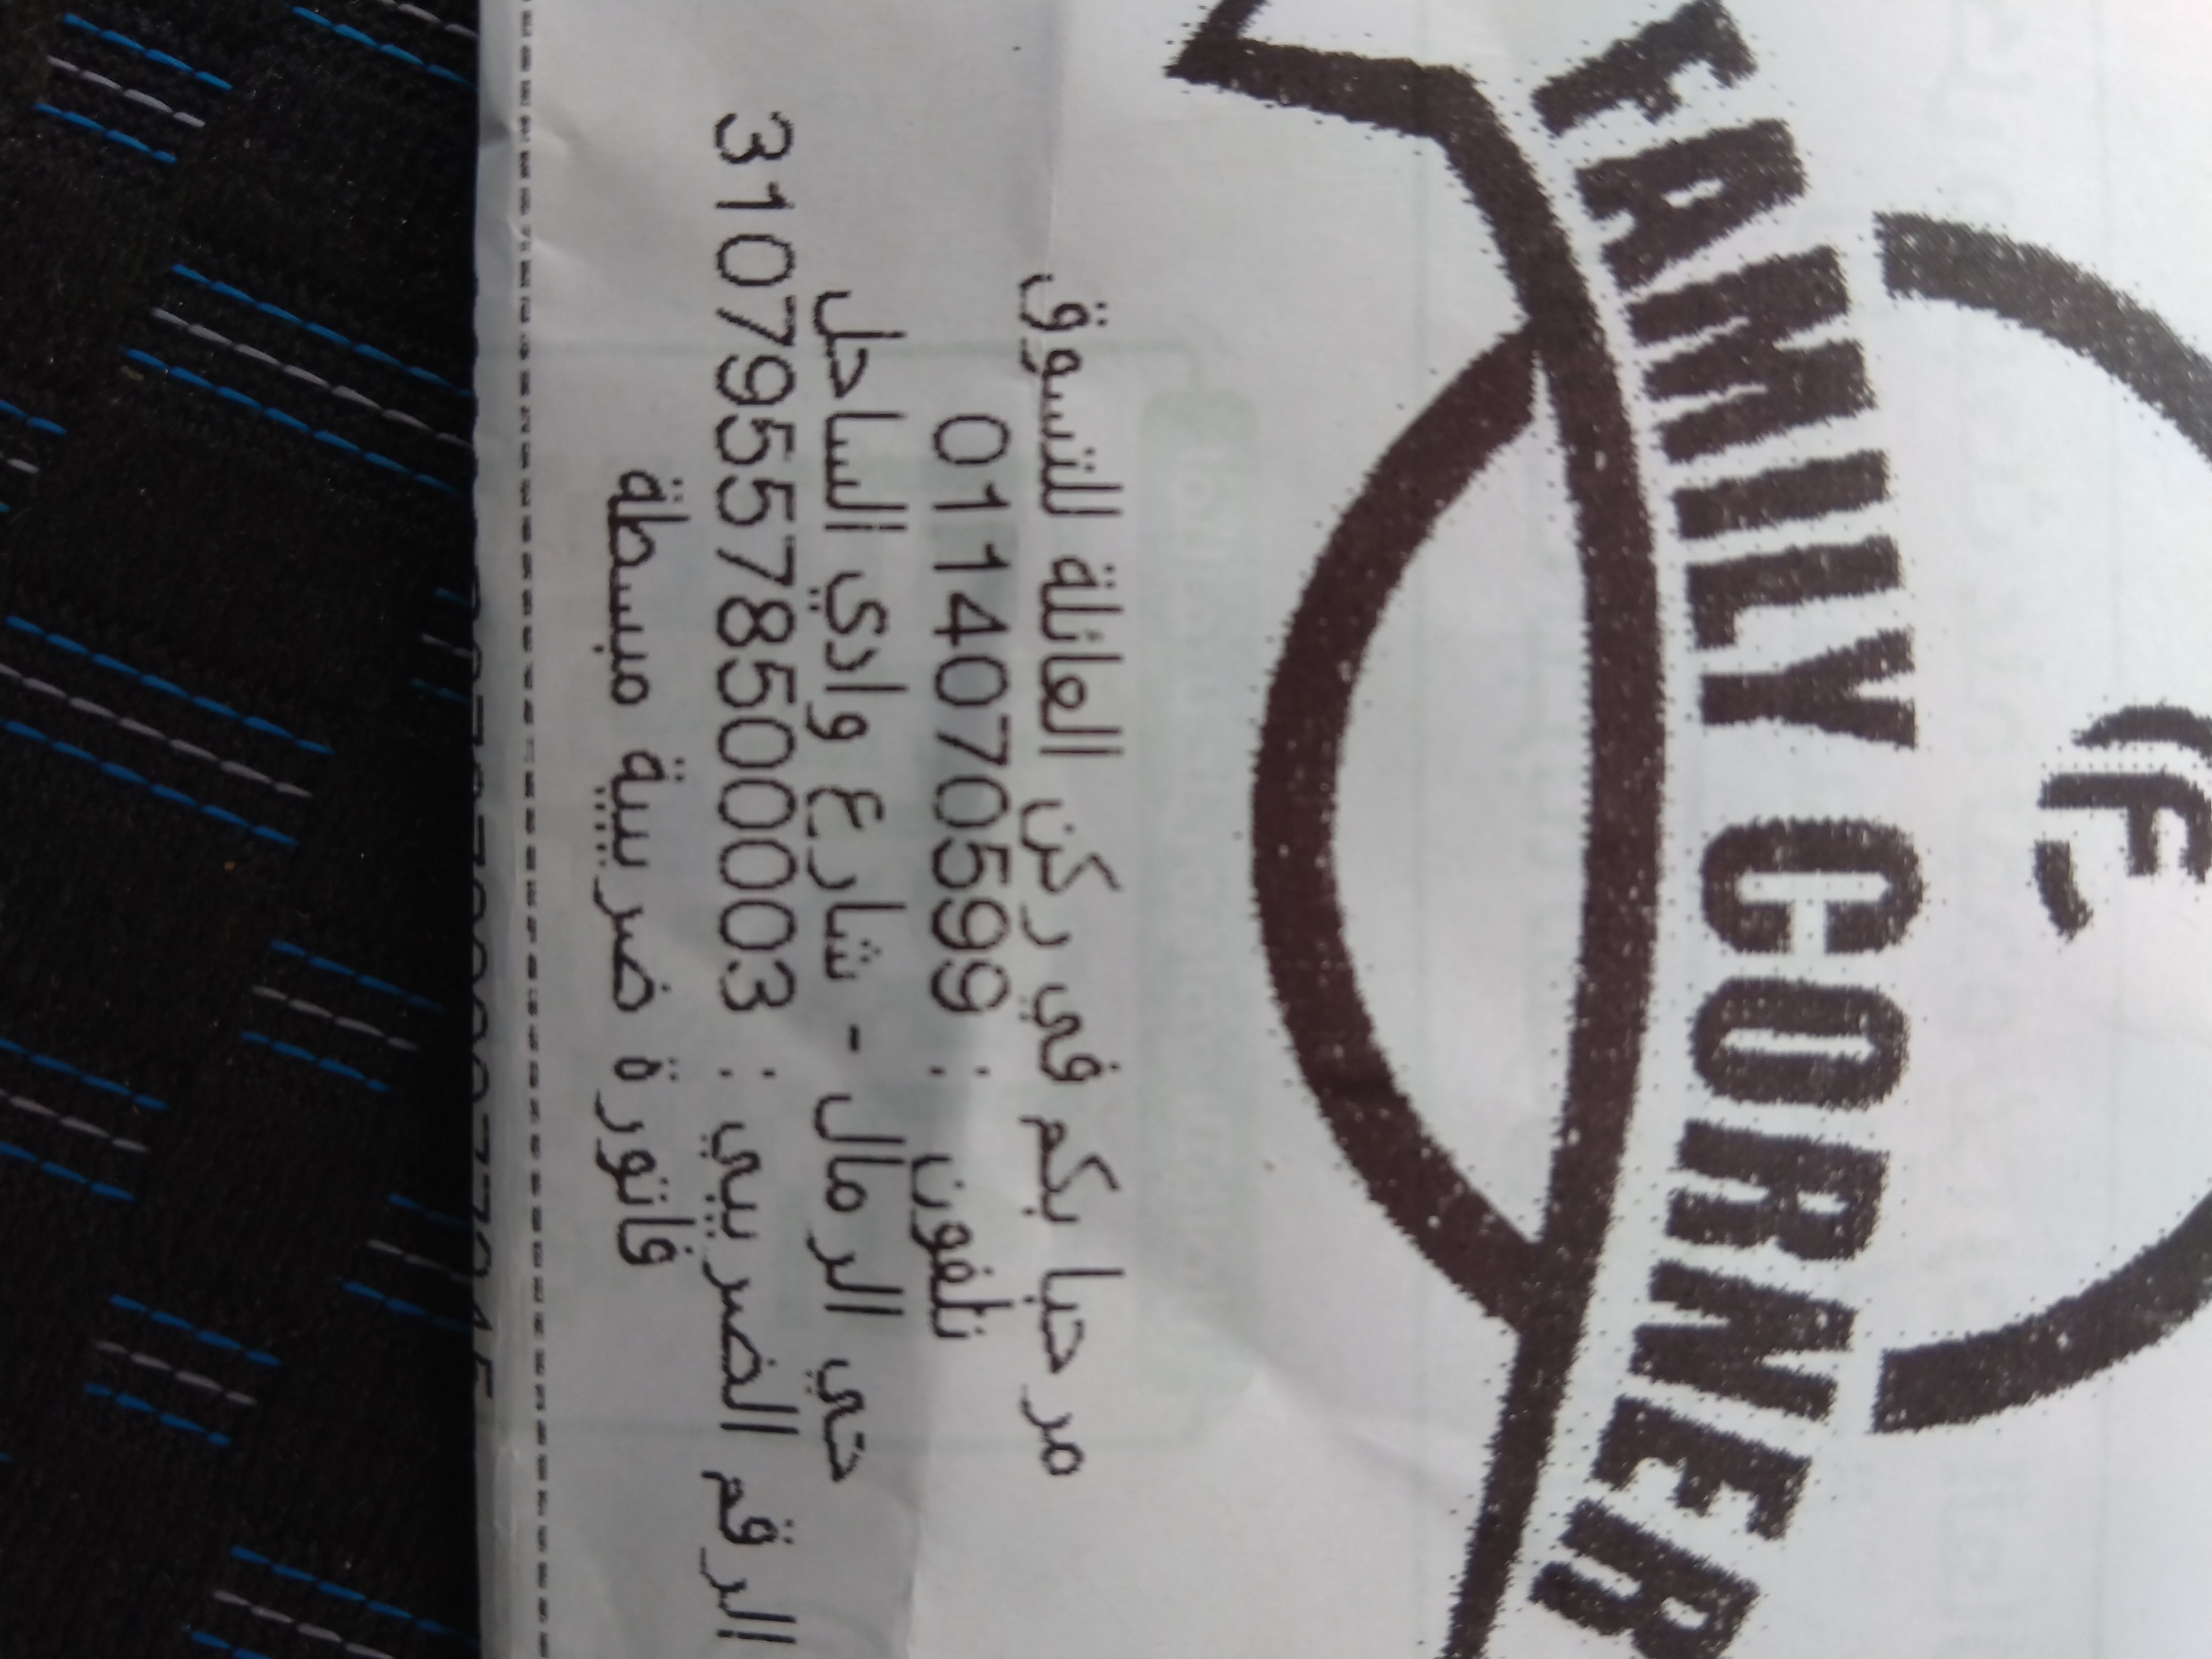 FAMILY CORNER
مرحبا بكم في ركن العائلة للتسوق
تلفون : 0114070599
حي الرمال - شارع وادي الساحل
الرقم الضريبي : 310795578500003
فاتورة ضريبية مبسطة